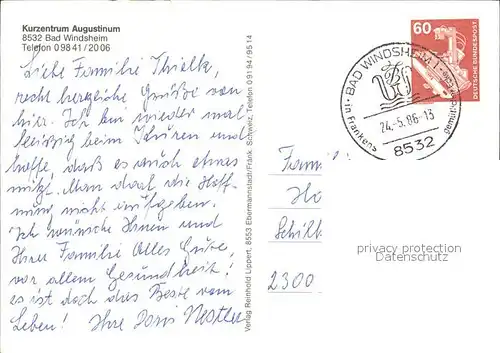 Kurzentrum Augustinum
8532 Bad Windsheim
Telefon 0 98 41 / 20 06
Liebe Familie Thielk,
recht herzliche Grüße von
hier. Ich bin wieder mal
fleissig beim Kuren und
hoffe, daß es auch etwas
nützt. Man darf die Hoff-
nung nicht aufgeben.
Ich wünsche Ihnen und
Ihrer Familie Alles Gute,
vor allem Gesundheit!
es ist doch das Beste vom
Leben! Ihre Doris Nestler
Verlag Reinhold Lippert, 8553 Ebermannstadt/Fränk. Schweiz, Telefon 0 91 94 / 95 14
60
DEUTSCHE BUNDESPOST
BAD WINDSHEIM
in Franken
gemütlich
24.-5.86-13
8532
Fami
Schilk
2300
privacy protection
Datenschutz